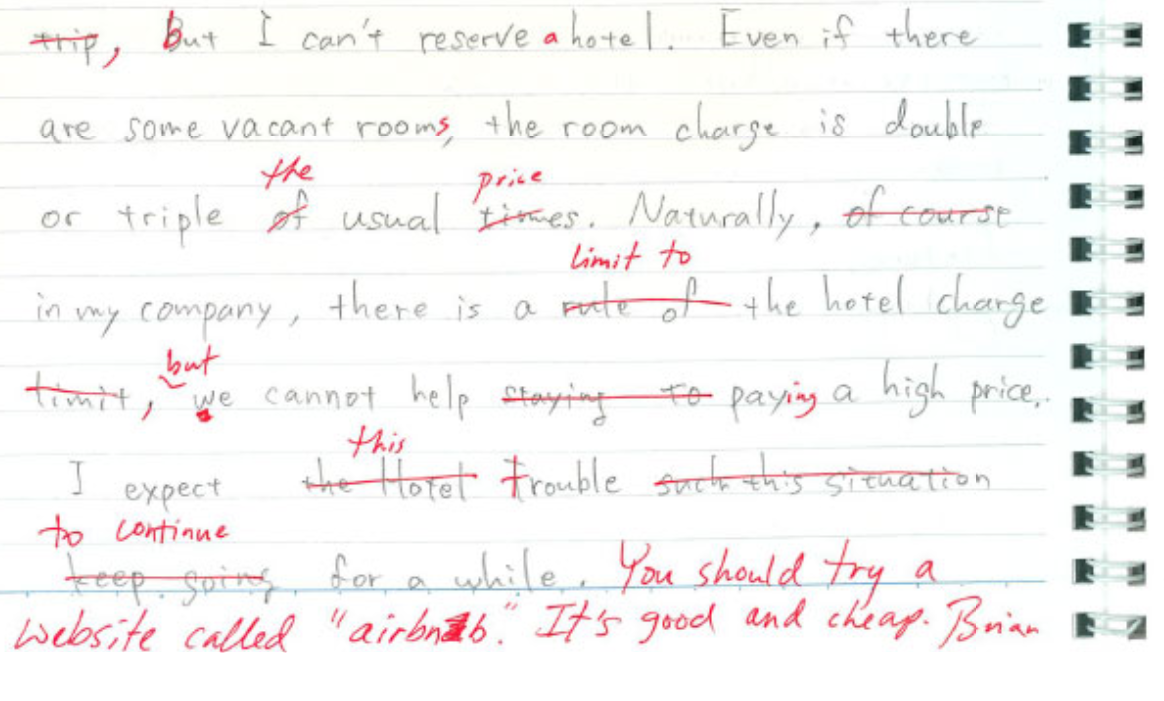 trip, But I can't reserve a hotel. Even if there
are some vacant rooms, the room charge is double
the price
or triple of usual times. Naturally, of course
limit to
in my company, there is a rule of the hotel charge
but
limit, we cannot help staying to paying a high price.
this
I expect the Hotel trouble such this situation
to continue
keep going for a while. You should try a
website called "airbnb." It's good and cheap. Brian